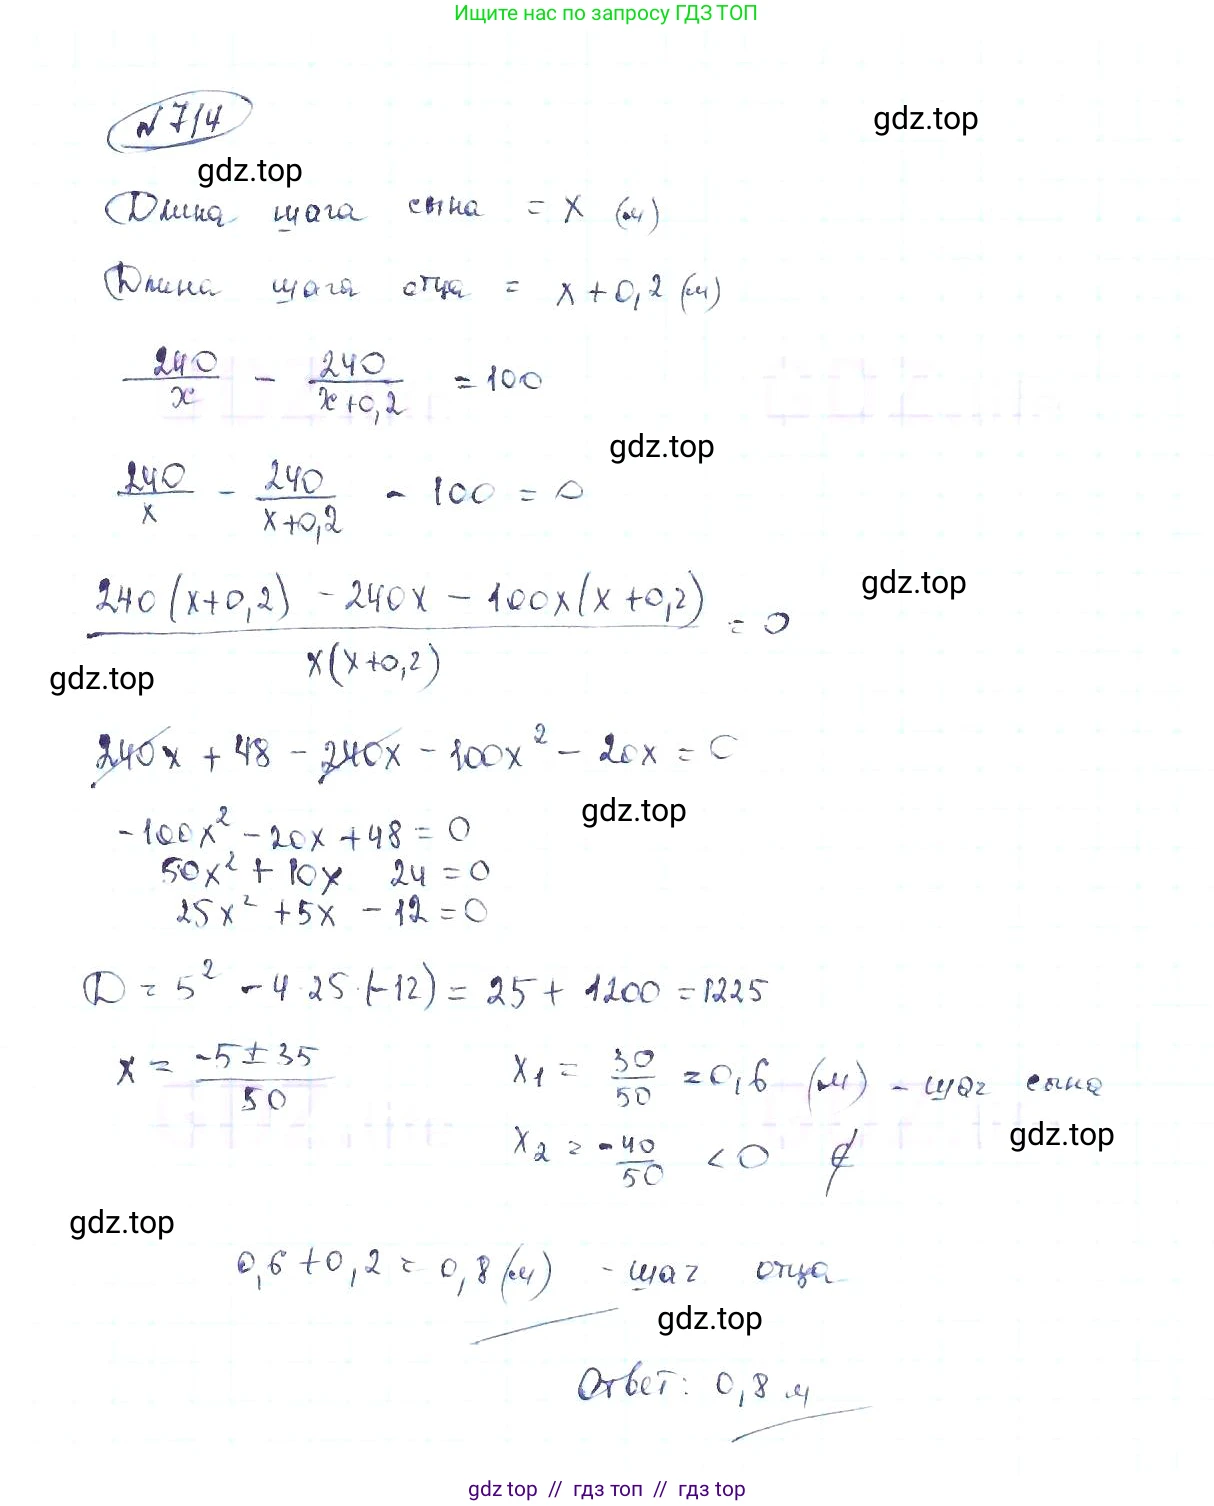 Ищите нас по запросу ГДЗ ТОП
№ 714
gdz.top
gdz.top
Длина шага сына = x (м)
Длина шага отца = x + 0,2 (м)
240/x - 240/(x+0,2) = 100
gdz.top
240/x - 240/(x+0,2) - 100 = 0
gdz.top
(240(x+0,2) - 240x - 100x(x+0,2))/(x(x+0,2)) = 0
gdz.top
240x + 48 - 240x - 100x² - 20x = 0
gdz.top
-100x² - 20x + 48 = 0
50x² + 10x 24 = 0
25x² + 5x - 12 = 0
D = 5² - 4·25·(-12) = 25 + 1200 = 1225
x = (-5 ± 35)/50 x₁ = 30/50 = 0,6 (м) - шаг сына
gdz.top
x₂ = -40/50 < 0 ∉
gdz.top
0,6 + 0,2 = 0,8 (м) - шаг отца
gdz.top
Ответ: 0,8 м
gdz top // гдз топ // гдз top